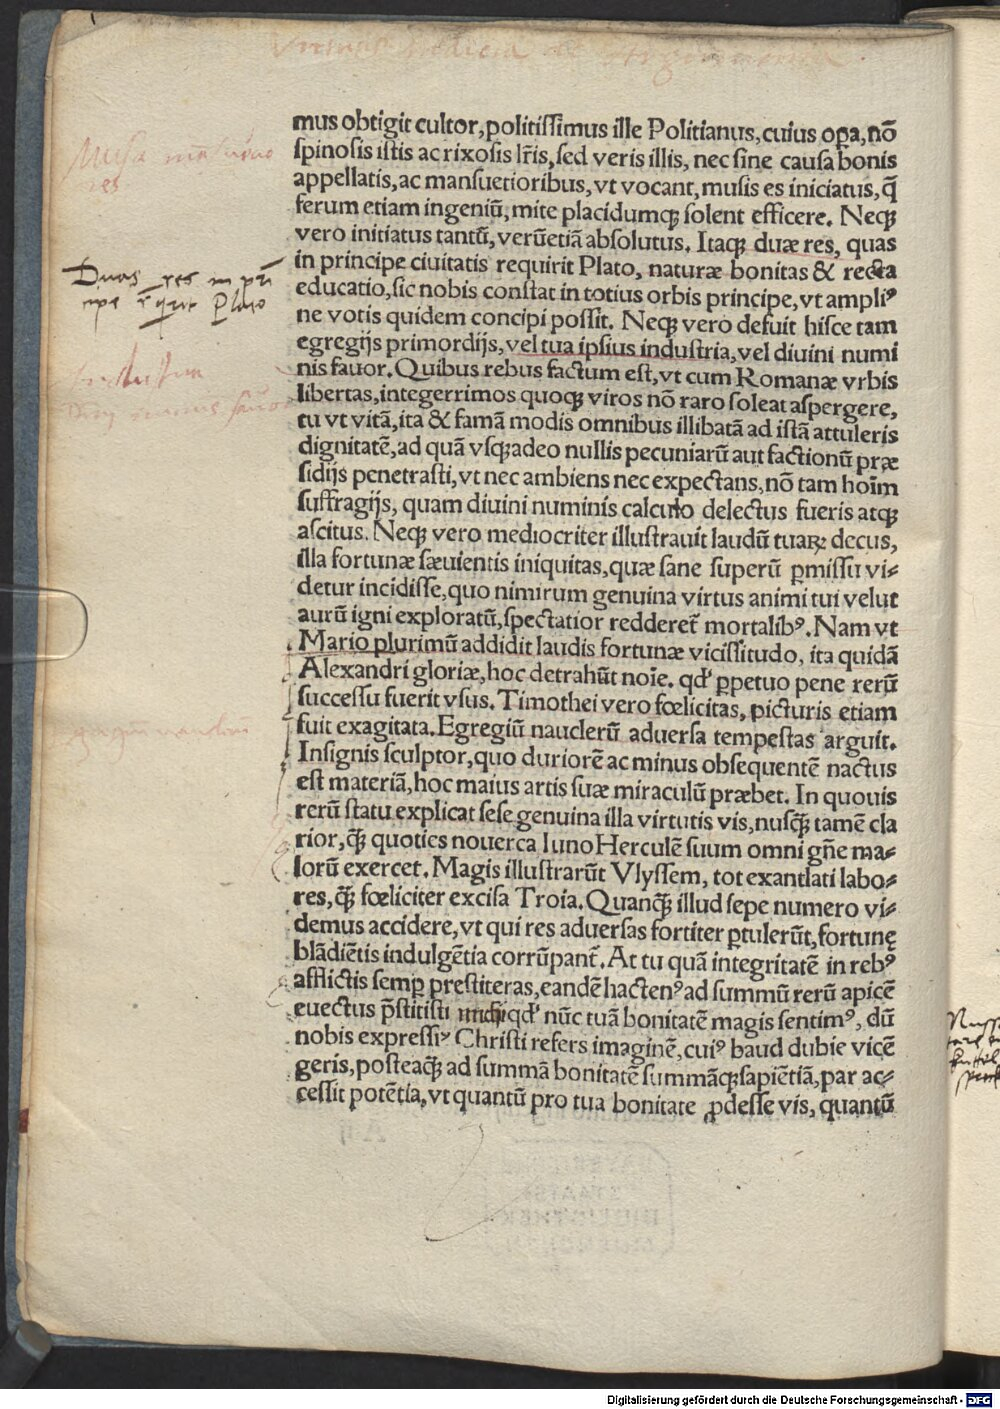 mus obtigit cultor, politissimus ille Politianus, cuius oꝑa, nō
spinosis istis ac rixosis lr̃is, sed veris illis, nec sine causa bonis
appellatis, ac mansuetioribus, vt vocant, musis es iniciatus, q̃
ferum etiam ingeniũ, mite placidumqꝫ solent efficere. Neqꝫ
vero initiatus tantũ, verũetiã absolutus. Itaqꝫ duæ res, quas
in principe ciuitatis requirit Plato, naturæ bonitas & recta
educatio, sic nobis constat in totius orbis principe, vt ampliꝰ
ne votis quidem concipi possit. Neqꝫ vero defuit hisce tam
egregijs primordijs, vel tua ipsius industria, vel diuini numi
nis fauor. Quibus rebus factum est, vt cum Romanæ vrbis
libertas, integerrimos quoqꝫ viros nō raro soleat aspergere,
tu vt vitã, ita & famã modis omnibus illibatã ad istã attuleris
dignitatẽ, ad quã vsqꝫadeo nullis pecuniarũ aut factionũ præ
sidijs penetrasti, vt nec ambiens nec expectans, nō tam hoĩm
suffragijs, quam diuini numinis calculo delectus fueris atqꝫ
ascitus. Neqꝫ vero mediocriter illustrauit laudũ tuaꝝ decus,
illa fortunæ sæuientis iniquitas, quæ sane superũ ꝑmissu vi⸗
detur incidisse, quo nimirum genuina virtus animi tui velut
aurũ igni exploratũ, spectatior redderet᷑ mortalibꝰ. Nam vt
Mario plurimũ addidit laudis fortunæ vicissitudo, ita quidã
Alexandri gloriæ, hoc detrahũt noĩe. qđ ꝑpetuo pene rerũ
successu fuerit vsus. Timothei vero fœlicitas, picturis etiam
fuit exagitata. Egregiũ nauclerũ aduersa tempestas arguit.
Insignis sculptor, quo duriorẽ ac minus obsequentẽ nactus
est materiã, hoc maius artis suæ miraculũ præbet. In quouis
rerũ statu explicat sese genuina illa virtutis vis, nusq̃ꝫ tamẽ cla
rior, q̃ꝫ quoties nouerca Iuno Herculẽ suum omni gñe ma⸗
lorũ exercet. Magis illustrarũt Vlyssem, tot exantlati labo⸗
res, q̃ꝫ fœliciter excisa Troia. Quanq̃ꝫ illud sepe numero vi⸗
demus accidere, vt qui res aduersas fortiter ꝑtulerũt, fortunę
blãdiẽtis indulgẽtia corrũpant᷑. At tu quã integritatẽ in rebꝰ
afflictis semꝑ prestiteras, eandẽ hactenꝰ ad summũ rerũ apicẽ
euectus p̃stitisti qđ nũc tuã bonitatẽ magis sentimꝰ, dũ
nobis expressiꝰ Christi refers imaginẽ, cuiꝰ haud dubie vicẽ
geris, posteaq̃ꝫ ad summã bonitatẽ summãqꝫ sapiẽtiã, par ac⸗
cessit potẽtia, vt quantũ pro tua bonitate ꝓdesse vis, quantũ
Duas res in prī
cipe requirit Plato
Digitalisierung gefördert durch die Deutsche Forschungsgemeinschaft - DFG